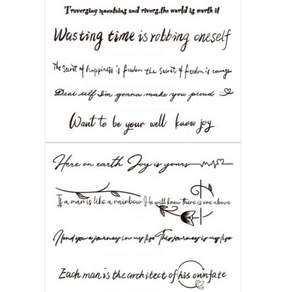 Traversing mountains and rivers, the world is worth it
Wasting time is robbing oneself
The secret of happiness is freedom the secret of freedom is courage
Dear self I'm gonna make you proud
Want to be your well know joy
Here on earth Joy is yours
If a man is like a rainbow He will know there is one above
journey is life This journey is life
Each man is the architect of his own fate